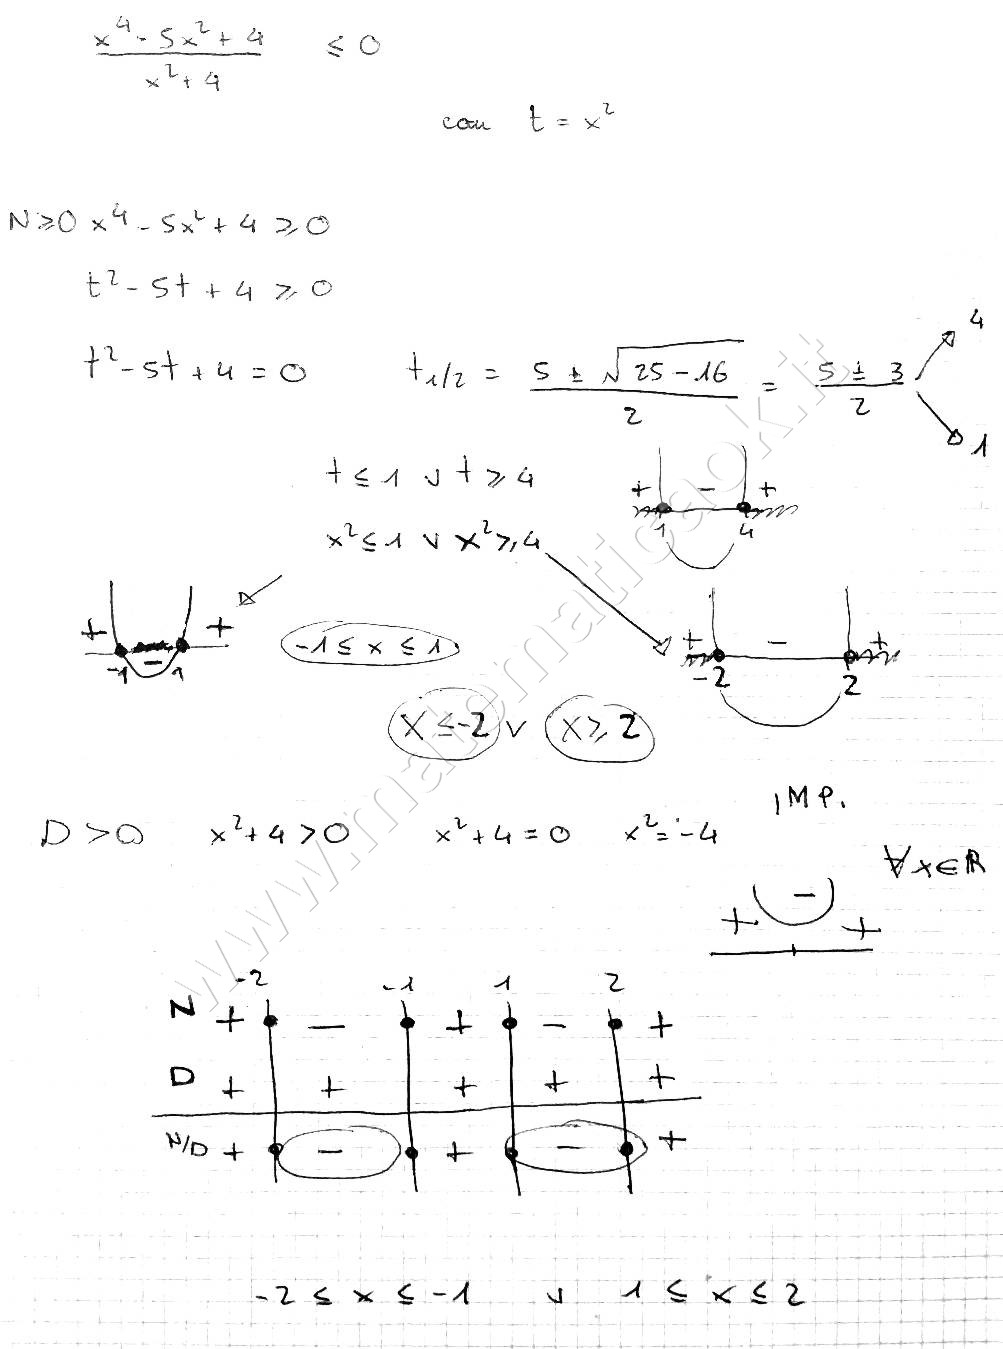 x⁴ - 5x² + 4 / x² + 4 ≤ 0
con t = x²
N ≥ 0 x⁴ - 5x² + 4 ≥ 0
t² - 5t + 4 ≥ 0
t² - 5t + 4 = 0 t1/2 = 5 ± √25 - 16 / 2 = 5 ± 3 / 2 4 1
t ≤ 1 ∨ t ≥ 4 + - + 1 4
x² ≤ 1 ∨ x² ≥ 4
+ - + -1 1 -1 ≤ x ≤ 1 + - + -2 2
x ≤ -2 ∨ x ≥ 2
IMP.
D > 0 x² + 4 > 0 x² + 4 = 0 x² = -4
∀x∈R
+ - +
-2 -1 1 2
N + - + - +
D + + + + +
N/D + - + - +
-2 ≤ x ≤ -1 ∨ 1 ≤ x ≤ 2
www.matematicaok.it